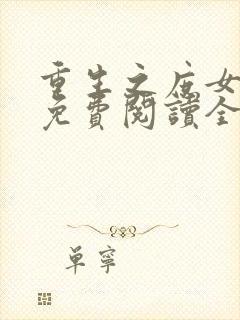 重生之庶女
免費閱讀全
單寧